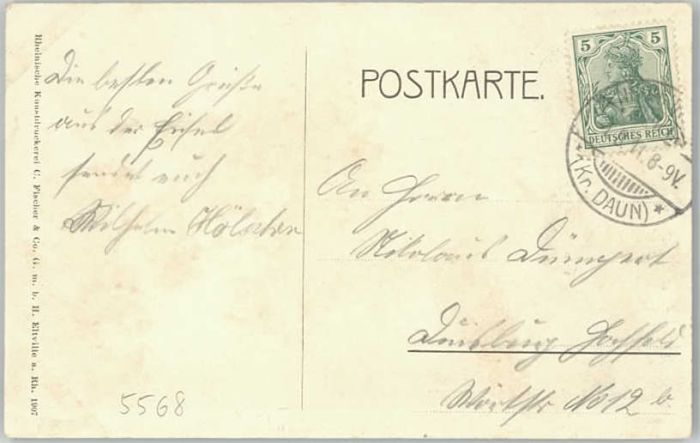 Rheinische Kunstdruckerei C. Fischer & Co. G. m. b. H. Eltville a. Rh. 1907
Die besten Grüße
aus der Eifel
sendet euch
Wilhelm
5568
POSTKARTE.
5 5
DEUTSCHES REICH
8-9V.
*(Kr. DAUN)*
An Herrn
Nikolaus
Duisburg Hochfeld
No 12 b.